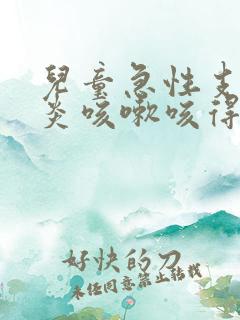 兒童急性支
炎咳嗽咳得
好快的刀
未經同意禁止轉載